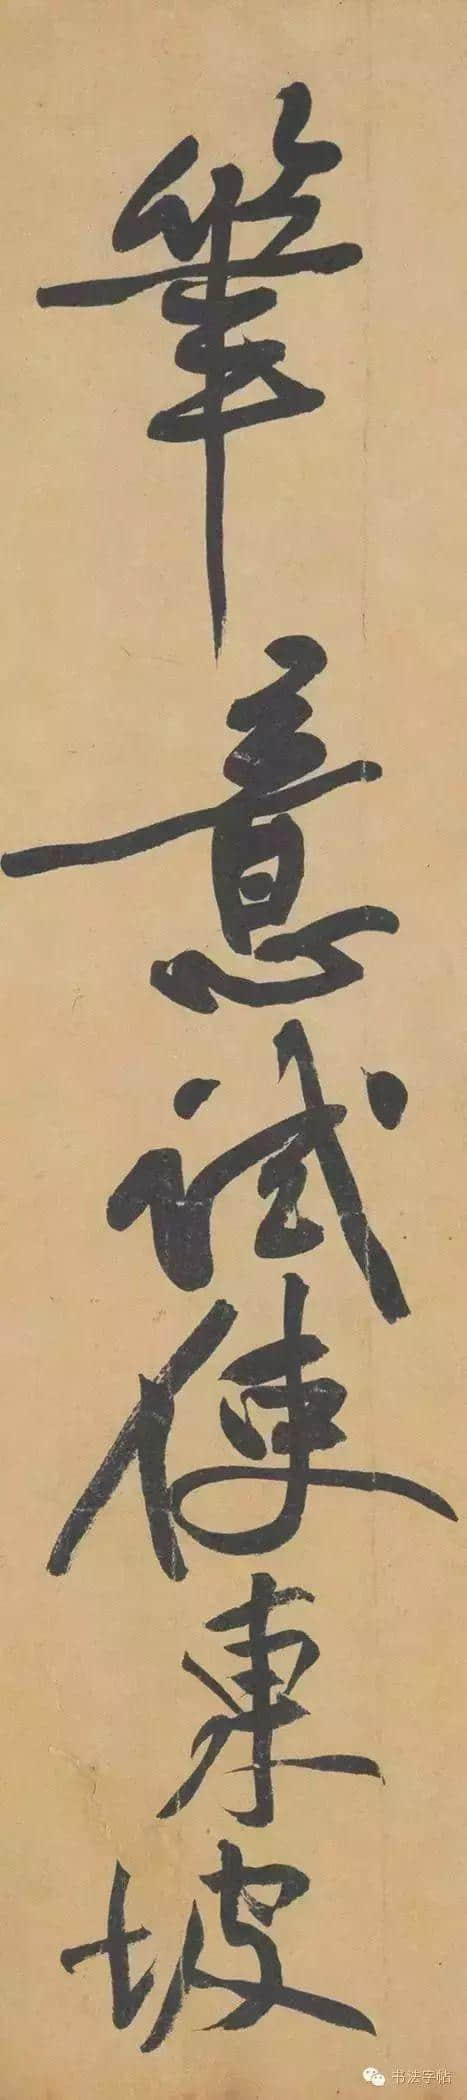 筆意試使東坡
书法字帖